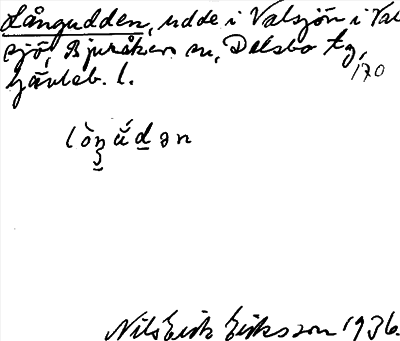 Långudden, udde i Valsjön i Val
sjö, Bjuråkers sn, Delsbo tg,
Gävleb. l. 170
lὸŋ ŭ́d̲ən
Nils Erik Eriksson 1936.